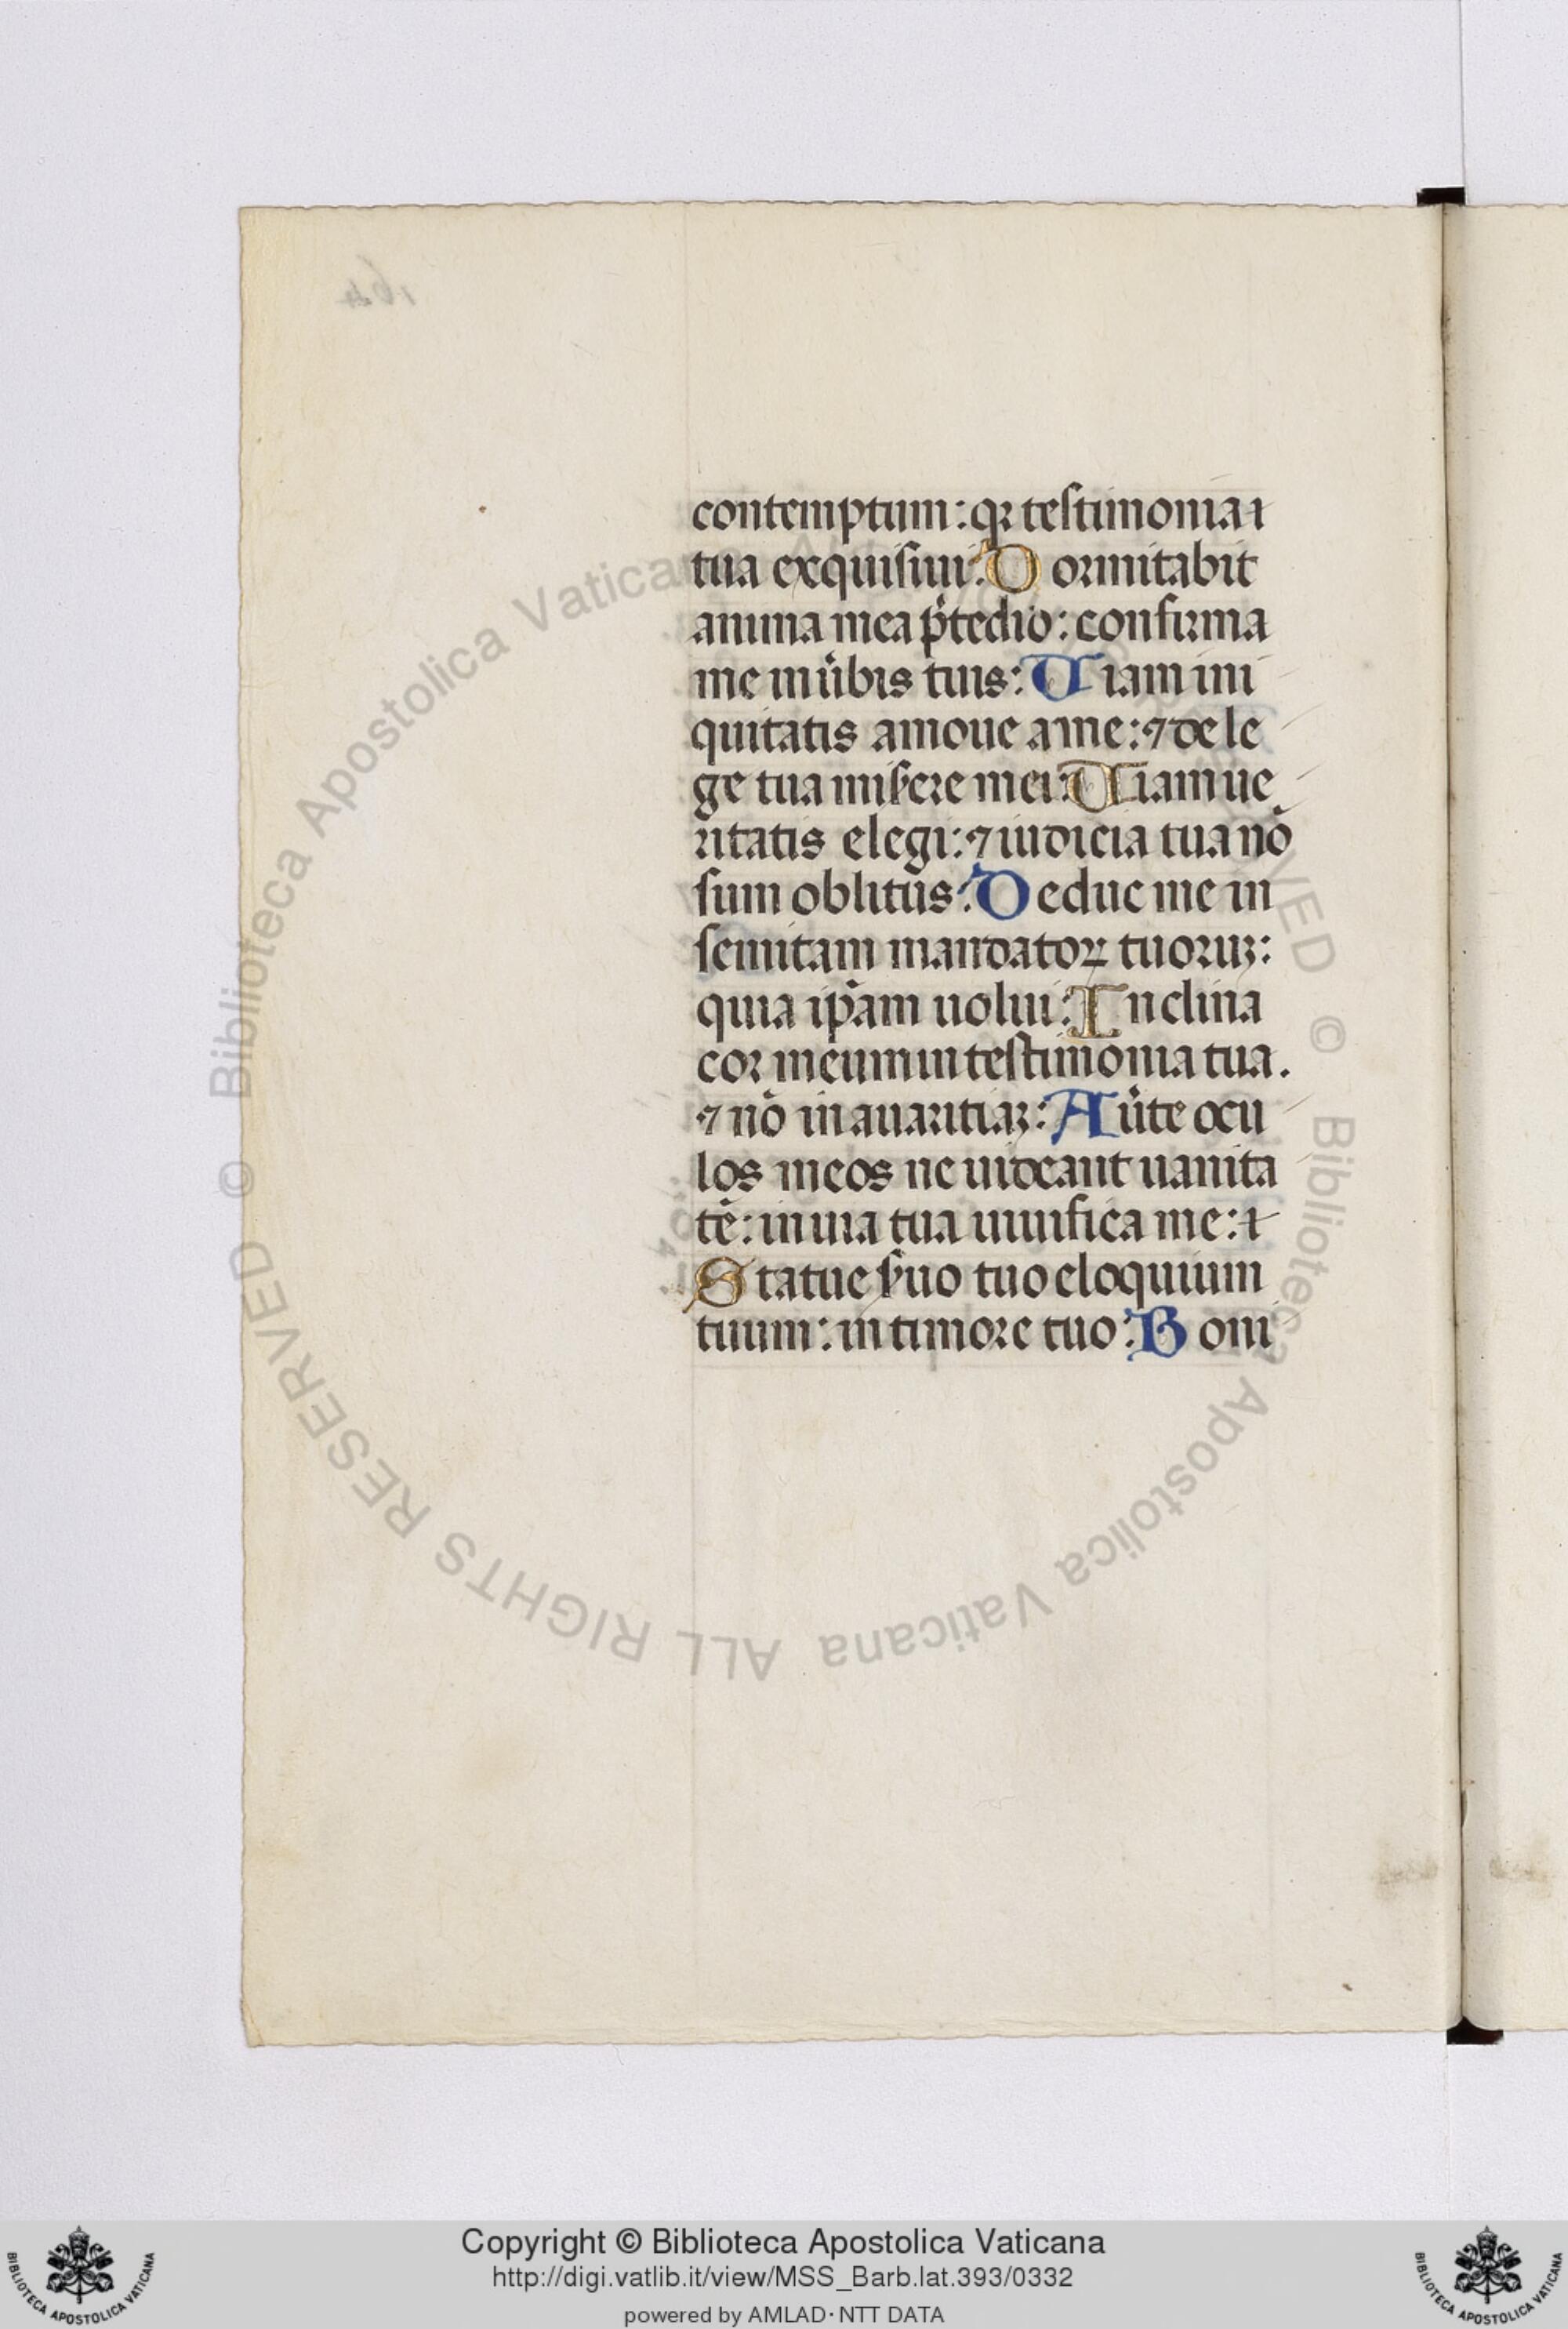 contemptum: qꝛ testimonia
tua exquisiui: Dormitabit
anima mea p̄ tedio: confirma
me in u̓bis tuis: Uiam ini
quitatis amoue a me: ⁊ de le
ge tua mis̓ere mei: Uiam ue
ritatis elegi: ⁊ iudicia tua nō
sum oblitus: Deduc me in
semitam mandatoꝝ tuoruꝫ:
quia ip̄am uolui: Inclina
cor meum in testimonia tua.
⁊ nō in auaritiaꝫ: Au̓te ocu
los meos ne uideant uanita
tē: in uia tua uiuifica me:
Statue s̓uo tuo eloquium
tuum: in timore tuo: Boni
164
© Biblioteca Apostolica Vaticana
ALL RIGHTS RESERVED
© Biblioteca Apostolica Vaticana
Copyright © Biblioteca Apostolica Vaticana
http://digi.vatlib.it/view/MSS_Barb.lat.393/0332
powered by AMLAD·NTT DATA
BIBLIOTECA APOSTOLICA VATICANA
BIBLIOTECA APOSTOLICA VATICANA